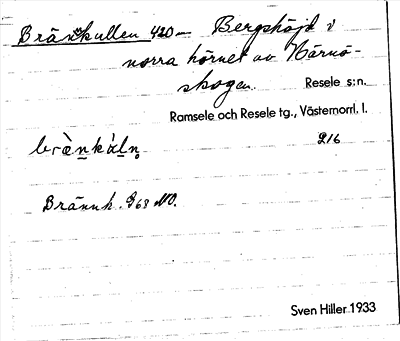 Brännkullen 420 – Bergshöjd i
norra hörnet av Närnö-
skogen. Resele s:n.
Ramsele och Resele tg., Västernorrl. l.
216
Brännk. G68 NO.
Sven Hiller 1933